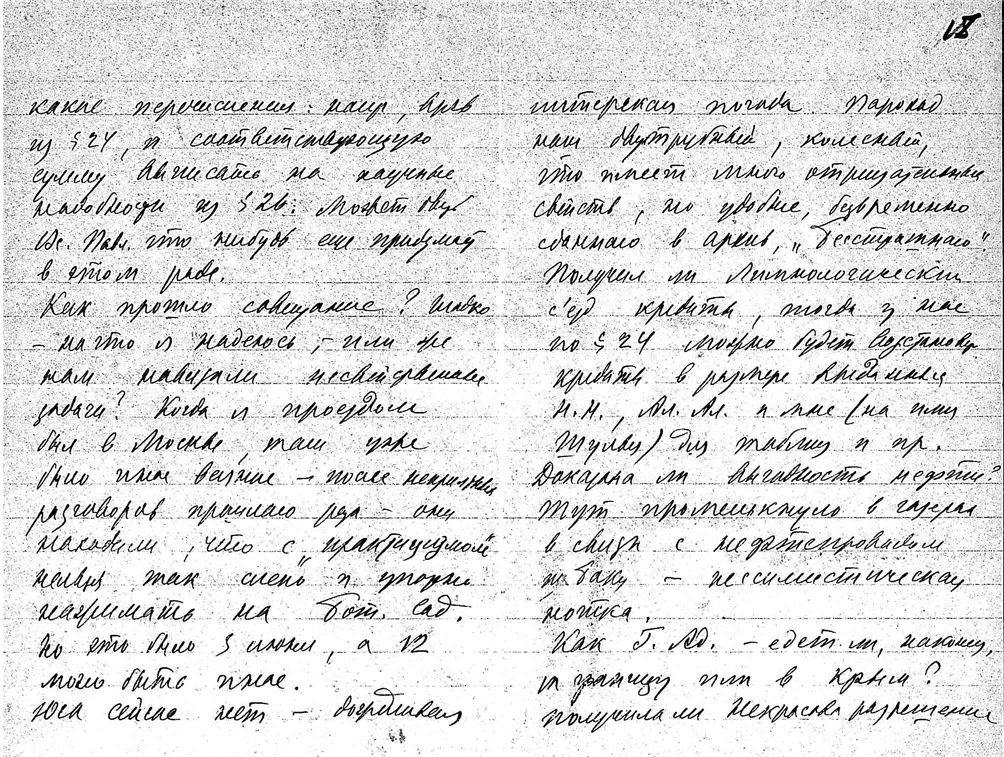 VI
какие перечисления: напр, врав
из § 24, и соответствующую
сумму выписать на научные
надобности из § 26. Может быть
Вс. Павл. что нибудь еще придумает
в этом роде.
Как прошло совещание? Гладко
– на что я надеюсь, – или же
нам навязали несвойственные
задачи? Когда я проездом
был в Москве, там уже
было иное веяние – после неприятных
разговоров прошлого раза – они
находили, что с „практицизмом"
нельзя так слепо и упорно
нажимать на Бот. Сад.
Но это было 5 июня, а 12
могло быть иное.
Юга сейчас нет –
питерская погода. Пароход
наш двутрубный, колесный,
что имеет много отрицательных
свойств, но удобнее,
сданного в архив, „Бесстрашного".
Получил ли Лимнологический
с'езд кредиты, тогда у нас
по § 24 можно будет восстановить
кредиты в размере выданных
Н.Н., Ал. Ал. и мне (на имя
Шульца) для таблиц и пр.
Доказана ли выгодность нефти?
Тут промелькнуло в газетах
в связи с нефтепроводом
из Баку – пессимистическая
нотка.
Как Г. Ад. – едет ли, наконец,
за границу или в Крым?
Получила ли Некрасова разрешение